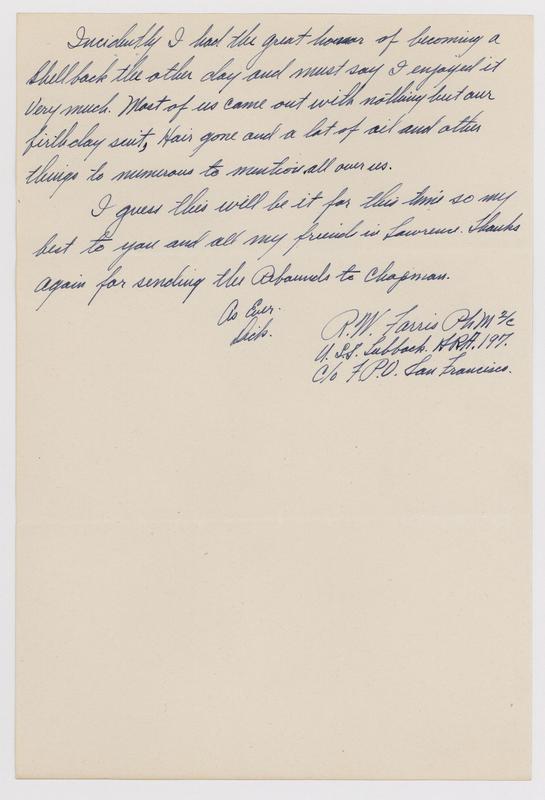 Incidently I had the great honor of becoming a
Shellback the other day and must say I enjoyed it
Very much. Most of us came out with nothing but our
firthday suit, Hair gone and a lot of oil and other
things to numerous to mention all over us.
I guess this will be it for this time so my
best to you and all my friends in Lawrence. Thanks
again for sending the Rebounds to Chapman.
As Ever.
Dick.
R.W. Farris PhM 2/c
U.S.S. Lubbock. APA. 197.
C/o F.P.O. San Francisco.